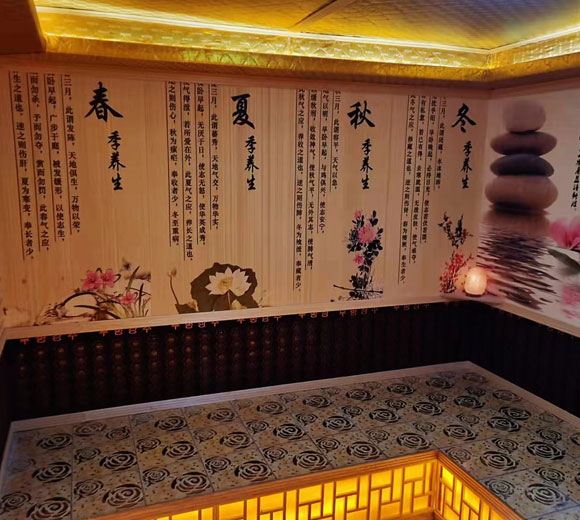 春季养生
三月，此谓发陈，天地俱生，万物以荣，
卧早起，广步于庭，被发缓形，以使志生，
而勿杀，予而勿夺，赏而勿罚，此春气之应，
生之道也，逆之则伤肝，夏为寒变，奉长者少。
夏季养生
三月，此谓蕃秀，天地气交，万物华实，
卧早起，无厌于日，使志无怒，使华英成秀，
气得泄，若所爱在外，此夏气之应，养长之道也，
之则伤心，秋为痎疟，奉收者少，冬至重病。
秋季养生
三月，此谓容平，天气以急，
气以明，早卧早起，与鸡俱兴，使志安宁，
秋刑，收敛神气，使秋气平，无外其志，使肺气清，
秋气之应，养收之道也，逆之则伤肺，冬为飧泄，奉藏者少。
冬季养生
三月，此谓闭藏，水冰地坼，
扰乎阳，早卧晚起，必待日光，使志若伏若匿，
有私意，若已有得，去寒就温，无泄皮肤，使气亟夺，
冬气之应，养藏之道也，逆之则伤肾，春为痿厥，奉生者少。